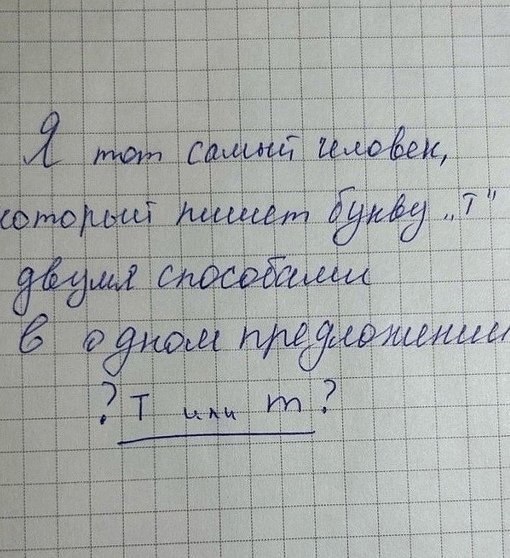 Я тот самый человек,
который пишет букву „Т"
двумя способами
в одном предложении
? Т или т ?